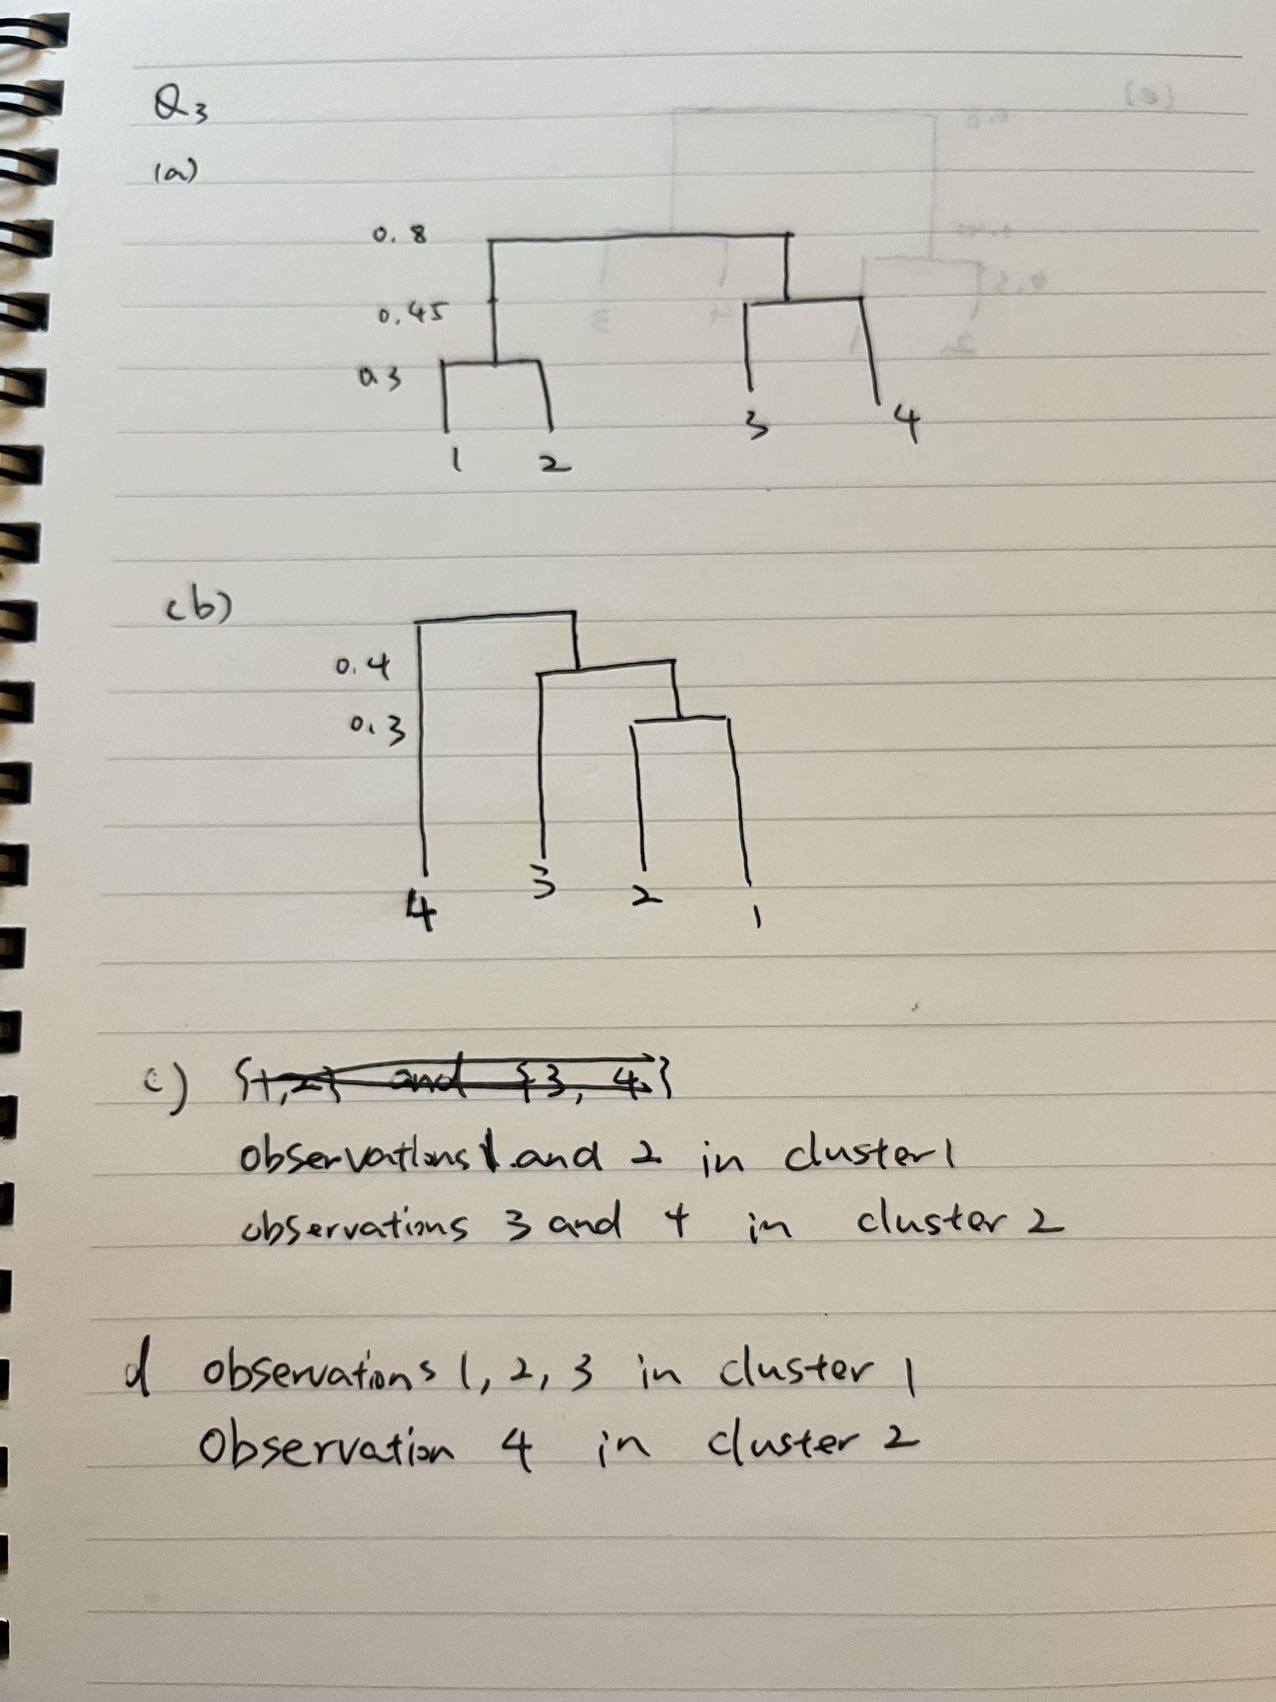 Q3
(a)
0.8
0.45
0.3
1 2 3 4
(b)
0.4
0.3
4 3 2 1
c) {1,2} and {3, 4}
observations 1 and 2 in cluster 1
observations 3 and 4 in cluster 2
d observations 1, 2, 3 in cluster 1
Observation 4 in cluster 2